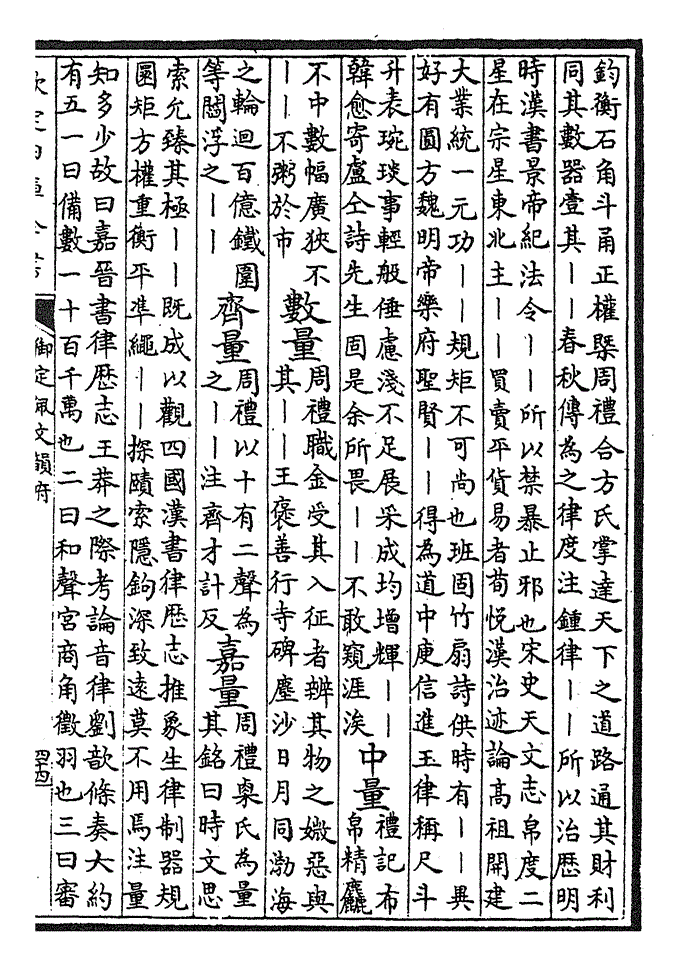 鈞衡石角斗甬正權槩周禮合方氏掌達天下之道路通其財利
同其數器壹其——春秋傳為之律度注鍾律——所以治歷明
時漢書景帝紀法令——所以禁暴止邪也宋史天文志帛度二
星在宗星東北主——買賣平貨易者荀悅漢治迹論高祖開建
大業統一元功——規矩不可尚也班固竹扇詩供時有——異
好有圓方魏明帝樂府聖賢——得為道中庾信進玉律稱尺斗
升表琬琰事輕般倕慮淺不足展采成均增輝——
韓愈寄盧仝詩先生固是余所畏——不敢窺涯涘
中量
禮記布
帛精麤
不中數幅廣狹不
——不粥於市
數量
周禮職金受其入征者辨其物之媺惡與
其——王褒善行寺碑塵沙日月同渤海
之輪迴百億鐵圍
等閻浮之——
齊量
周禮以十有二聲為
之——注齊才計反
嘉量
周禮㮚氏為量
其銘曰時文思
索允臻其極——既成以觀四國漢書律歷志推象生律制器規
圜矩方權重衡平準繩——探賾索隱鉤深致遠莫不用焉注量
知多少故曰嘉晉書律歷志王莽之際考論音律劉歆條奏大約
有五一曰備數一十百千萬也二曰和聲宮商角徵羽也三曰審
欽定四庫全書
御定佩文韻府
四十四